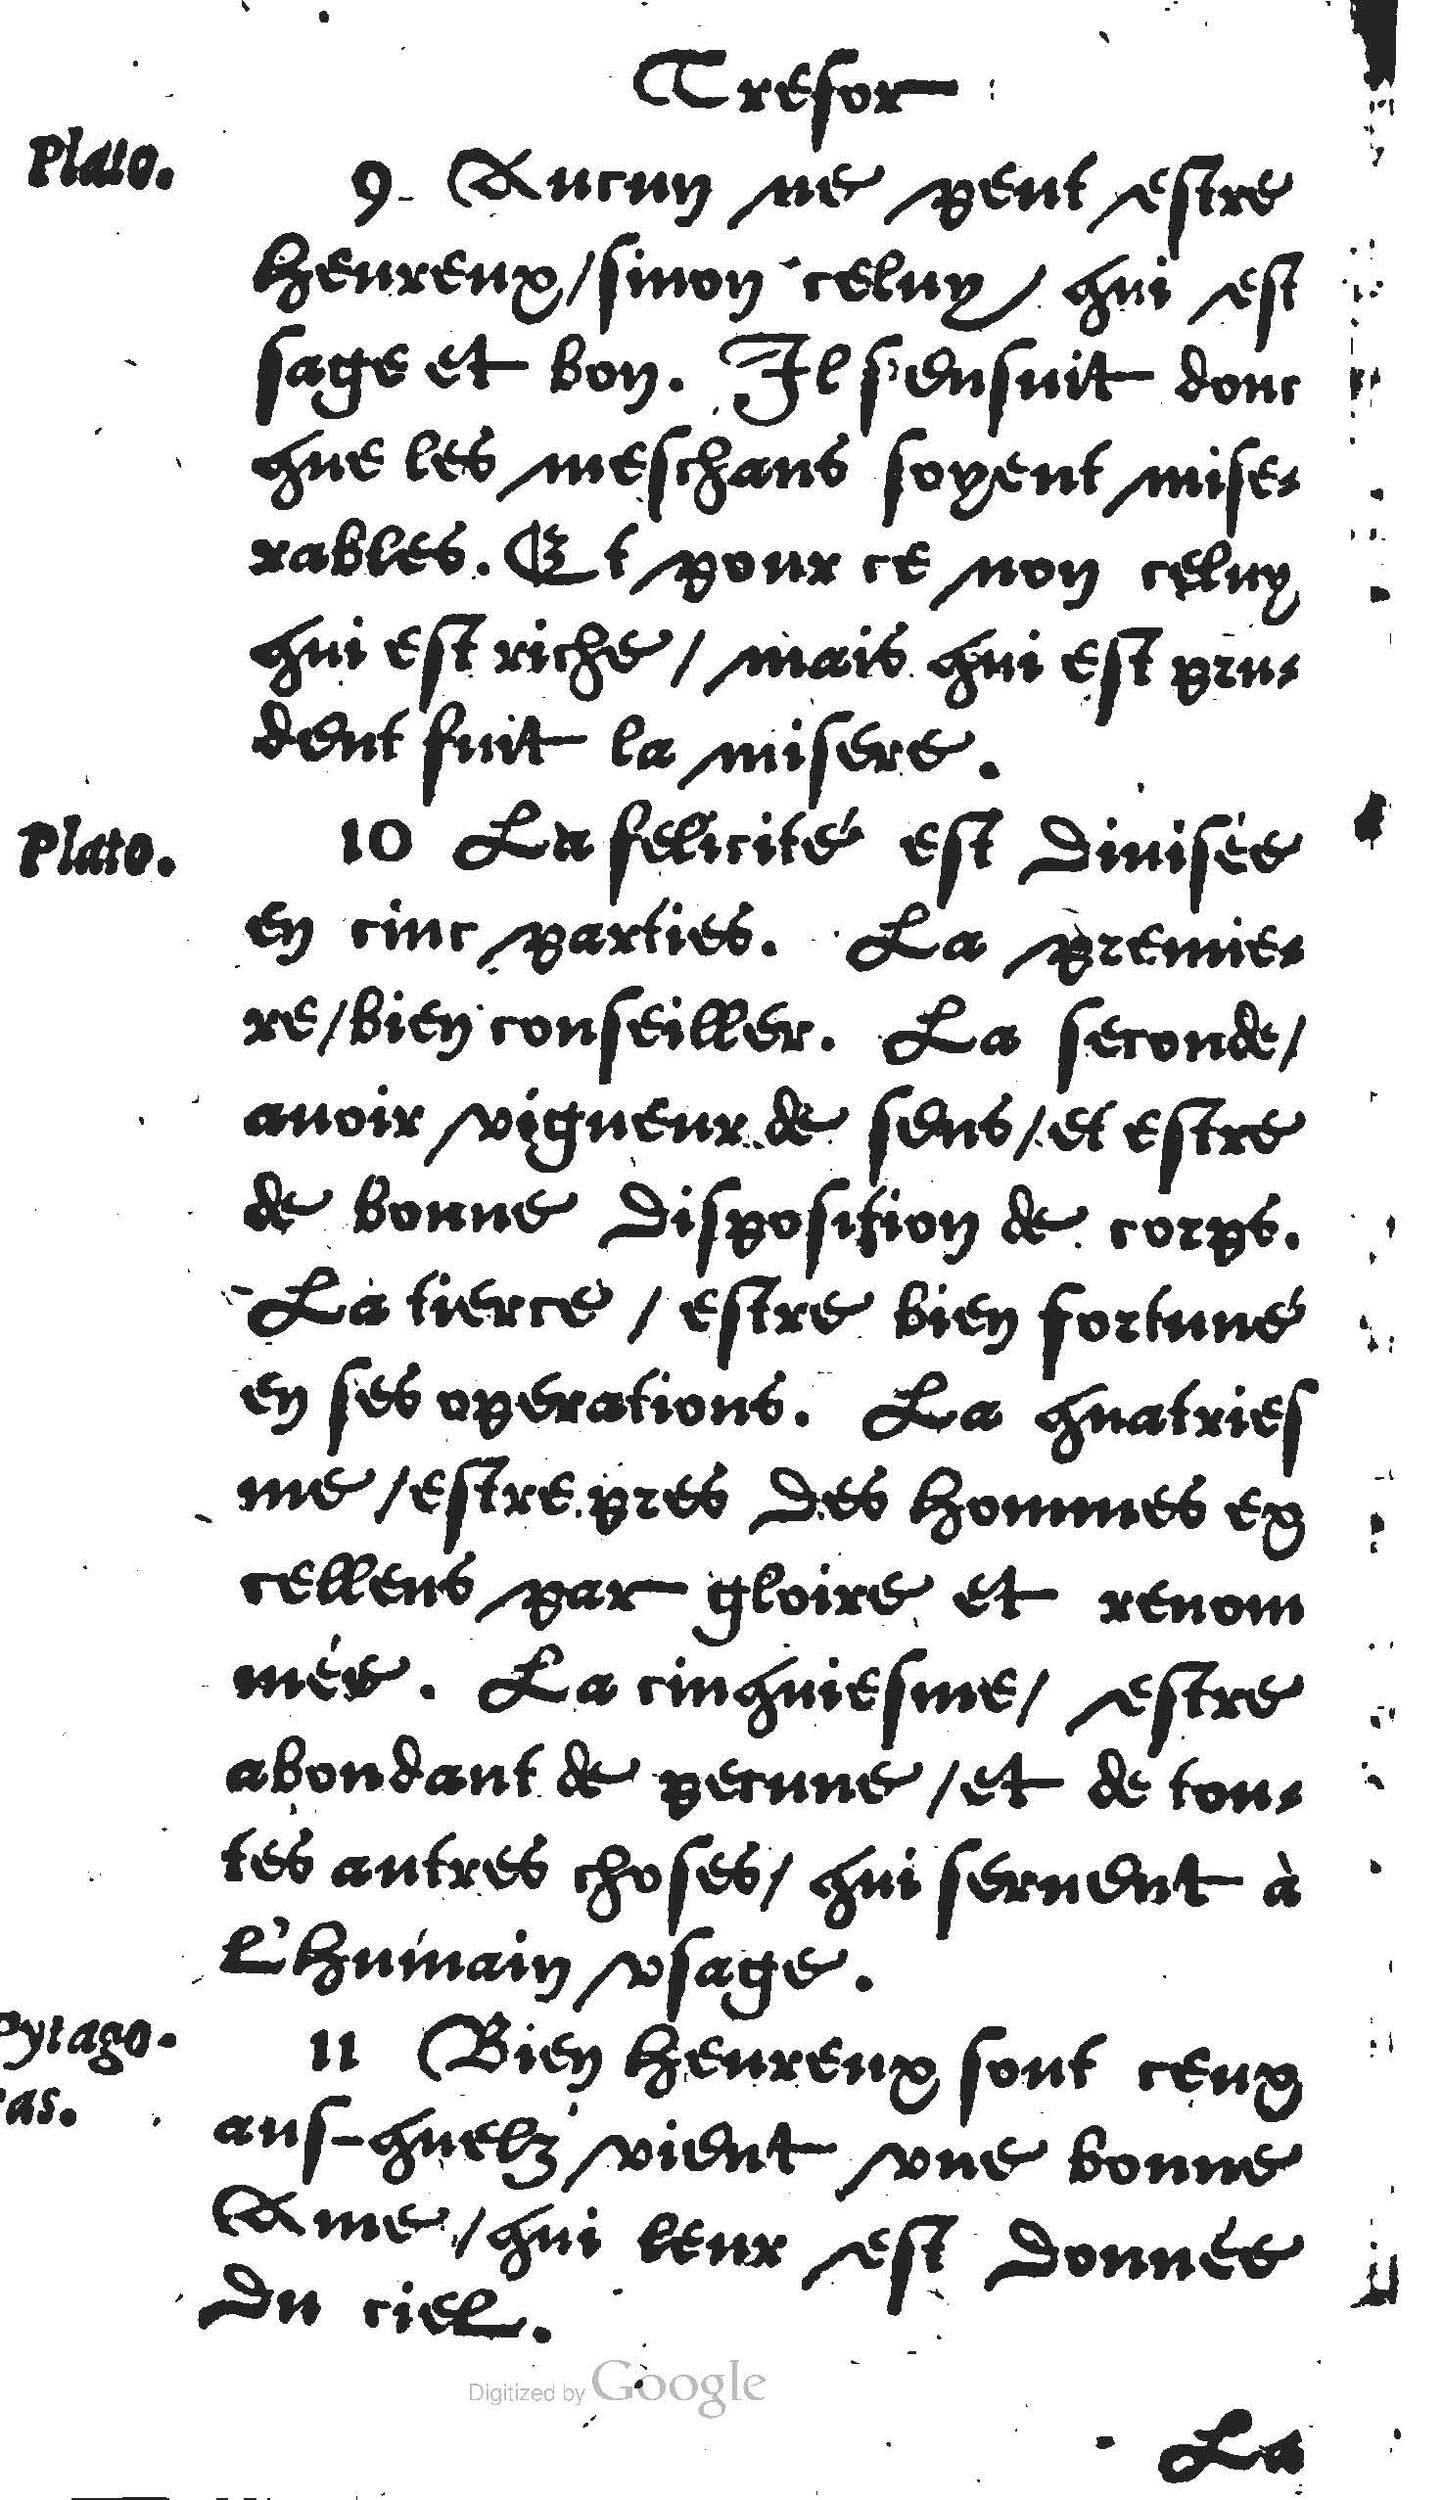 Tresor
Plato.
9 Aucun ne peut estre
heureux/sinon celuy/ qui est
sage et bon. Il s'ensuit donc
que les meschans soyent mise-
rables. Et pour ce non celuy
qui est riche/ mais qui est pru-
dent fuit la misere.
Plato.
10 La felicité est divisée
en cinc parties. La premie-
re/bien conseiller. La seconde/
auoir vigueur de sens/et estre
de bonne disposition de corps.
La tierce/ estre bien fortuné
en ses operations. La quatries
me/estre pres des hommes ex
cellens par gloire et renom
mée. La cinquiesme/ estre
abondant de pecune/et de tou-
tes autres choses/ qui seruent à
l'humain vsage.
Pytago-
ras.
11 Bien heureux sont ceux
aus-quelz vient vne bonne
Ame/qui leur est donnée
du ciel.
Digitized by Google
La